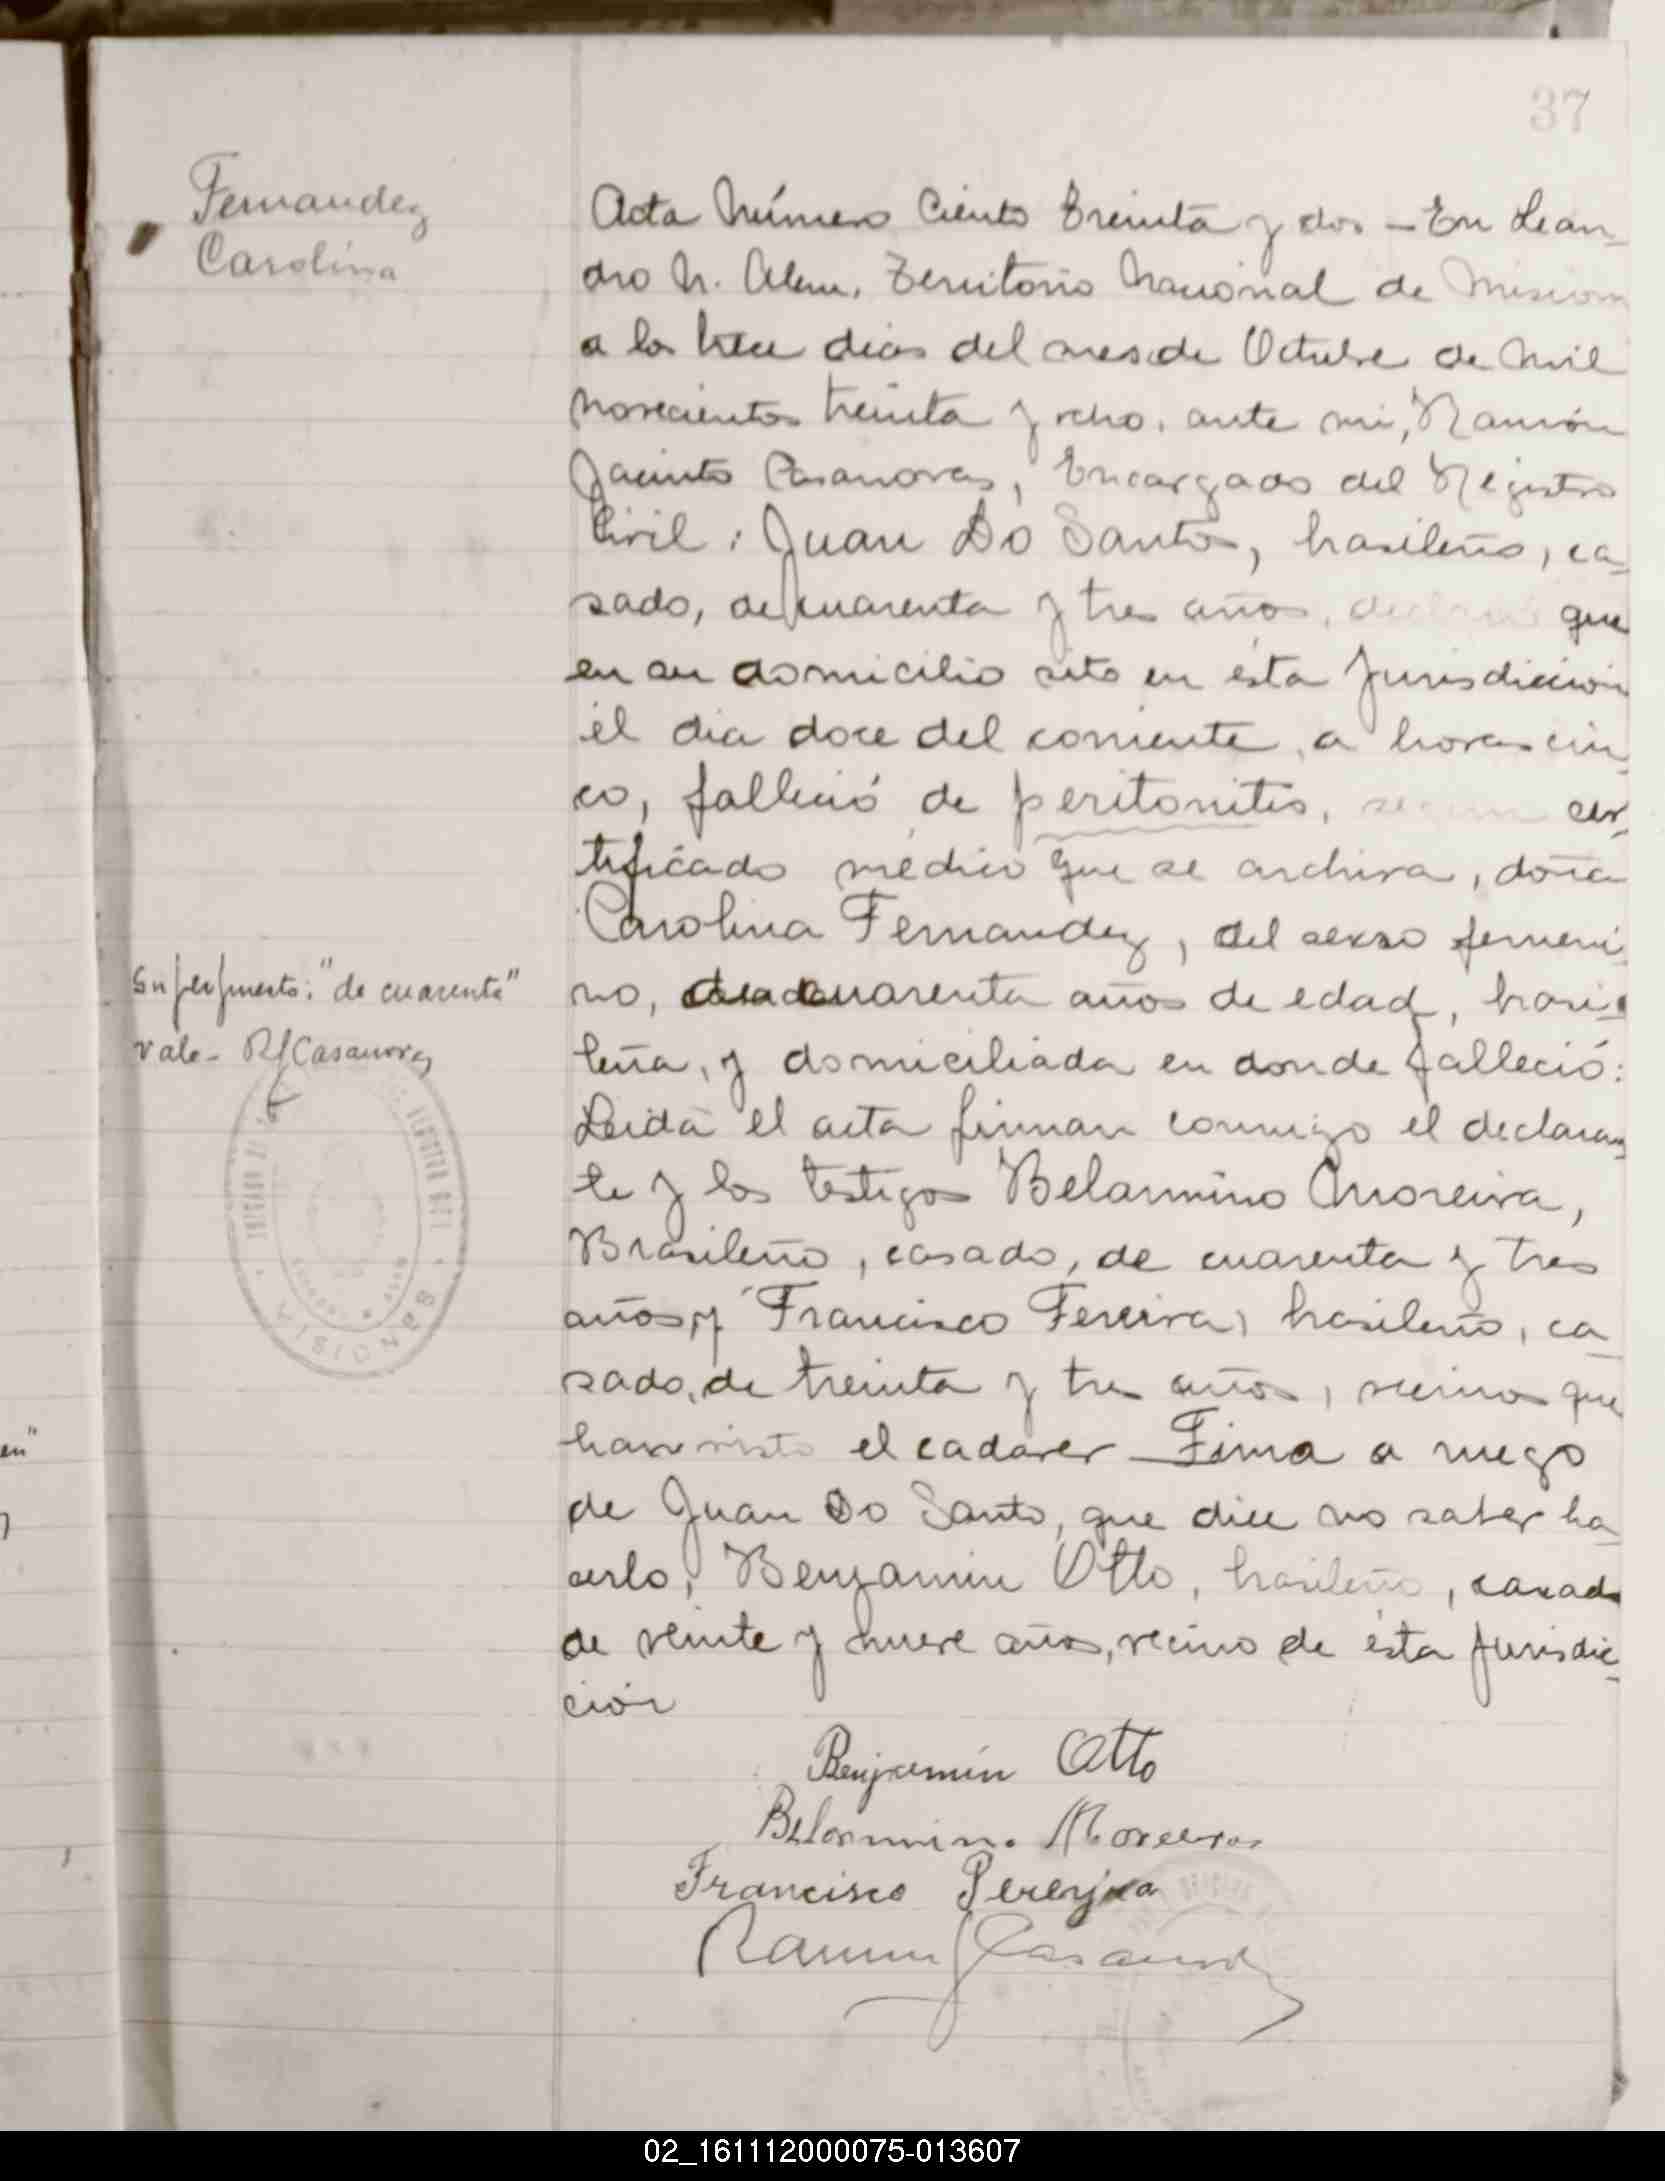 37
Fernandez
Carolina
Acta Número Ciento treinta y dos - En Lean-
dro N. Alem. Territorio Nacional de Mision
a los trece dias del mes de Octubre de mil
novecientos treinta y ocho, ante mi, Ramón
Jacinto Casanovas, Encargado del Registro
Civil: Juan Do Santos, brasileño, ca-
sado, de cuarenta y tres años, declara que
en su domicilio sito en ésta Jurisdiccion
el dia doce del corriente, a horas cin-
co, falleció de peritonitis, segun cer-
tificado médico que se archiva, doña
Carolina Fernandez, del sexso femeni-
no, de cuarenta años de edad, brasi-
leña, y domiciliada en donde falleció:
Leida el acta firman conmigo el declaran-
te y los testigos Belarmino Moreira,
Brasileño, casado, de cuarenta y tres
años, y Francisco Fereira, brasileño, ca-
sado, de treinta y tres años, vecinos que
han visto el cadaver - Firma a ruego
de Juan Do Santo, que dice no saber ha-
cerlo, Benjamin Otto, brasileño, casado
de veinte y nueve años, vecino de ésta Jurisdic-
ción
Superpuesto: "de cuarenta"
vale - RJCasanovas
MISIONES
en"
Benjamín Otto
Belarmino Moreira
Francisco Pereira
Ramon J Casanovas
02_161112000075-013607